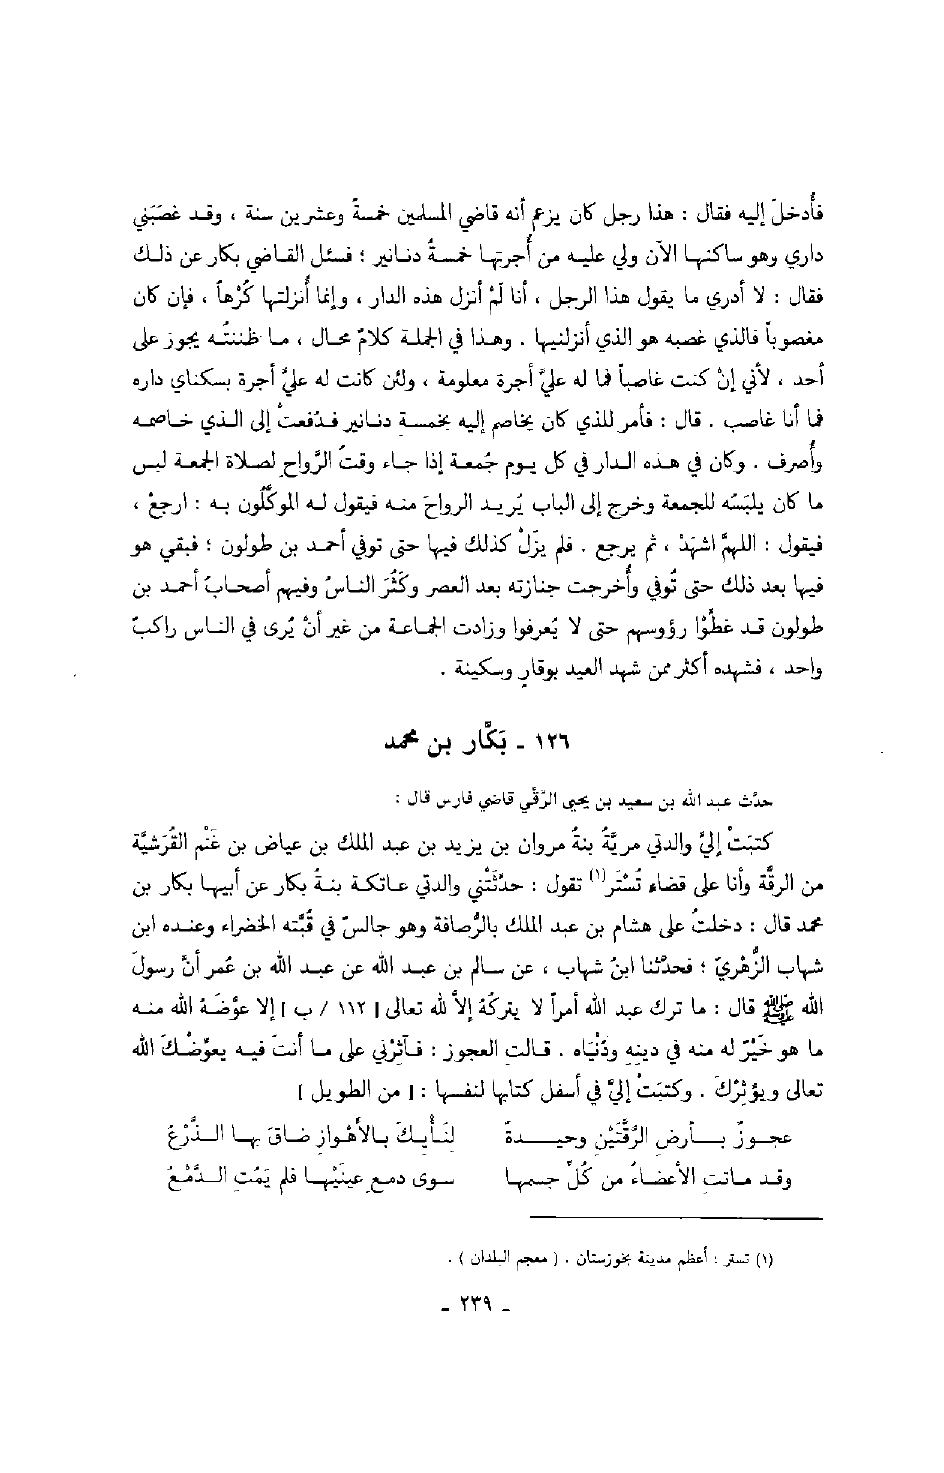 فأُدخلَ إليه فقال : هذا رجل كان يزعم أنه قاضي المسلمين خمسةً وعشرين سنة ، وقد غصَبَني
داري وهو ساكنها الآن ولي عليه من أُجرتها خمسةُ دنانير ؛ فسئل القاضي بكار عن ذلك
فقال : لا أدري ما يقول هذا الرجل ، أنا لَمْ أنزل هذه الدار ، وإنما أُنزلتها كُرْهاً ، فإن كان
مغصوباً فالذي غصبه هو الذي أنزلنيها . وهذا في الجملة كلامٌ محال ، ما ظننتُه يجوز على
أحد ، لأني إنْ كنت غاصباً فما له عليَّ أجرة معلومة ، ولئن كانت له عليَّ أجرة بسكناي داره
فما أنا غاصب . قال : فأمر للذي كان يخاصم إليه بخمسةِ دنانير فدُفعتْ إلى الذي خاصمه
وأُصرف . وكان في هذه الدار في كل يوم جُمعة إذا جاء وقتُ الرَّواح لصلاة الجمعة لبس
ما كان يلبَسُه للجمعة وخرج إلى الباب يُريد الرواحَ منه فيقول له الموكَّلون به : ارجعْ ،
فيقول : اللهمَّ اشهَدْ ، ثم يرجع . فلم يزَلْ كذلك فيها حتى توفي أحمد بن طولون ؛ فبقي هو
فيها بعد ذلك حتى تُوفي وأُخرجت جنازته بعد العصر وكَثُرَ الناسُ وفيهم أصحابُ أحمد بن
طولون قد غطَّوْا رؤوسهم حتى لا يُعرفوا وزادت الجماعة من غير أنْ يُرى في الناس راكبٌ
واحد ، فشهده أكثر ممن شهد العيد بوقارٍ وسكينة .
١٢٦ ـ بَكَّار بن محمد
حدَّث عبد الله بن سعيد بن يحيى الرَّقّي قاضي فارس قال :
كتبَتْ إليَّ والدتي مريَّةُ بنةُ مروان بن يزيد بن عبد الملك بن عياض بن غَنْم القُرَشيَّة
من الرقَّة وأنا على قضاء تُسْتَر(١) تقول : حدَّثَتْني والدتي عاتكة بنةُ بكار عن أبيها بكار بن
محمد قال : دخلتُ على هشام بن عبد الملك بالرُّصافة وهو جالسٌ في قُبَّته الخضراء وعنده ابن
شهاب الزُّهريّ ؛ فحدَّثنا ابنُ شهاب ، عن سالم بن عبد الله عن عبد الله بن عُمر أنَّ رسولَ
الله ﷺ قال : ما ترك عبد الله أمراً لا يتركُهُ إلاَّ لله تعالى [ ١١٢ / ب ] إلا عوَّضَهُ الله منه
ما هو خَيْرٌ له منه في دينِهِ ودُنْياه . قالتِ العجوز : فآثِرْني على ما أنتَ فيه يعوِّضْكَ الله
تعالى ويؤثِرْكَ . وكتبَتْ إليَّ في أسفل كتابها لنفسها : [ من الطويل ]
عجوزٌ بأرضِ الرَّقَّتَيْنِ وحيدةٌ لنَأْيِكَ بالأهوازِ ضاقَ بها الذَّرْعُ
وقد ماتتِ الأعضاءُ من كُلِّ جسمِها سوى دمعِ عينَيْها فلم يَمُتِ الدَّمْعُ
(١) تستر : أعظم مدينة بخوزستان . ( معجم البلدان ) .
ـ ٢٣٩ ـ